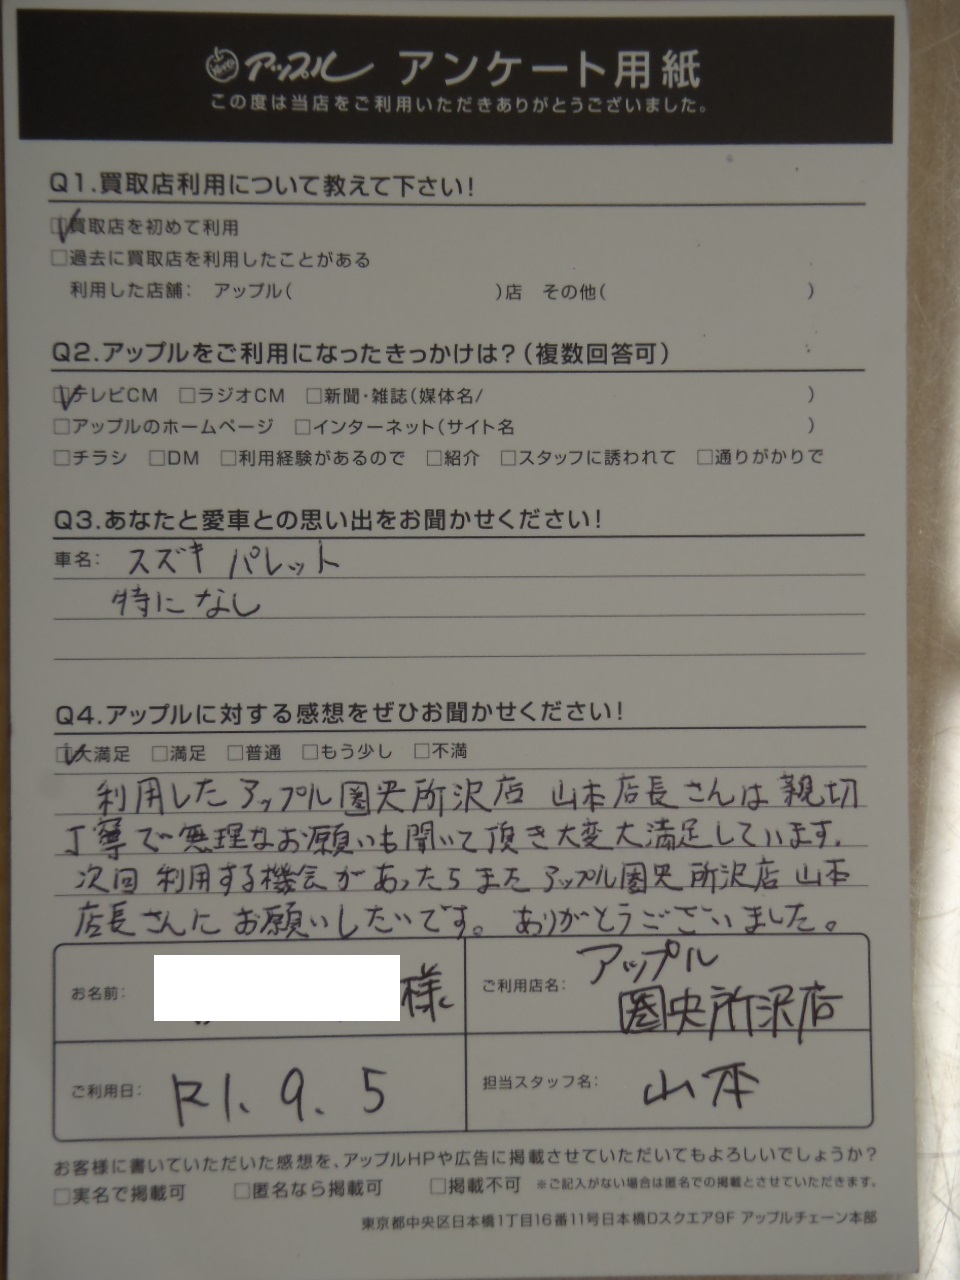 アップル アンケート用紙
この度は当店をご利用いただきありがとうございました。
Q1.買取店利用について教えて下さい!
☑買取店を初めて利用
□過去に買取店を利用したことがある
利用した店舗: アップル( )店 その他( )
Q2.アップルをご利用になったきっかけは?(複数回答可)
☑テレビCM □ラジオCM □新聞・雑誌(媒体名/ )
□アップルのホームページ □インターネット(サイト名 )
□チラシ □DM □利用経験があるので □紹介 □スタッフに誘われて □通りがかりで
Q3.あなたと愛車との思い出をお聞かせください!
車名: スズキ パレット
特になし
Q4.アップルに対する感想をぜひお聞かせください!
☑大満足 □満足 □普通 □もう少し □不満
利用したアップル圏央所沢店 山本店長さんは親切
丁寧で無理なお願いも聞いて頂き大変大満足しています。
次回利用する機会があったらまたアップル圏央所沢店 山本
店長さんにお願いしたいです。ありがとうございました。
お名前: 様
ご利用店名: アップル
圏央所沢店
ご利用日: R1.9.5
担当スタッフ名: 山本
お客様に書いていただいた感想を、アップルHPや広告に掲載させていただいてもよろしいでしょうか?
□実名で掲載可 □匿名なら掲載可 □掲載不可 ※ご記入がない場合は匿名での掲載とさせていただきます。
東京都中央区日本橋1丁目16番11号日本橋Dスクエア9F アップルチェーン本部